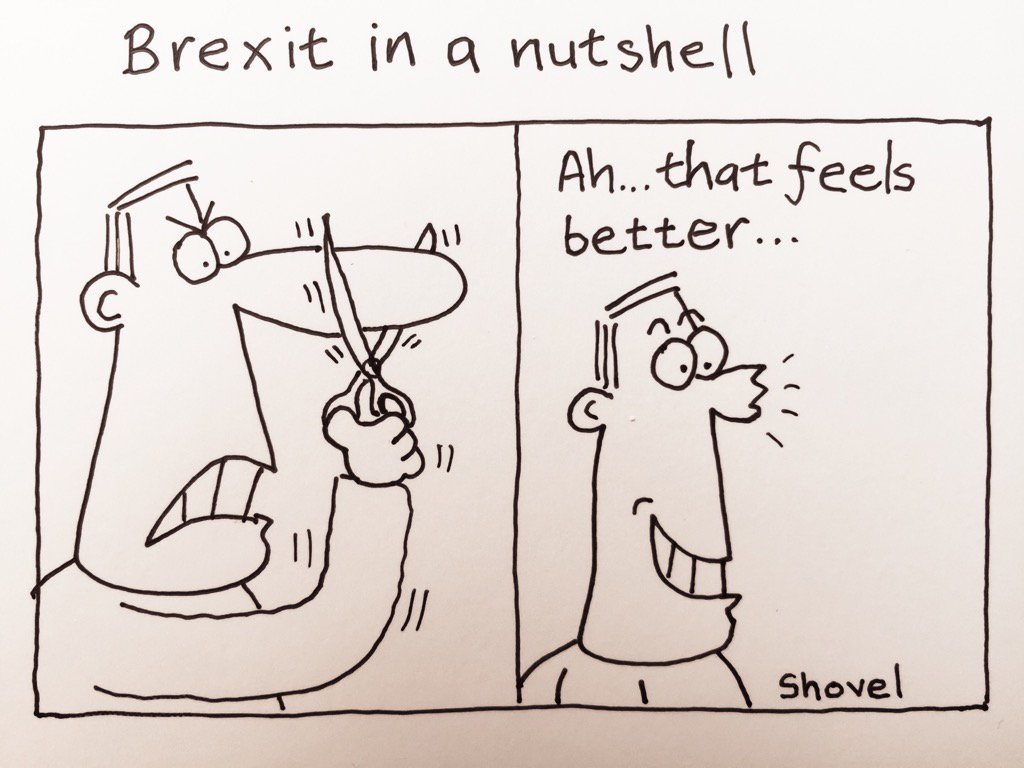 Brexit in a nutshell
Ah...that feels
better...
Shovel